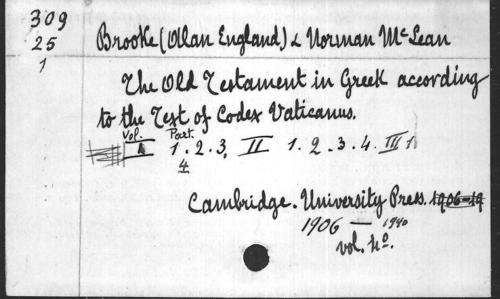 309
25
1
Brooke (Alan England) & Norman McLean
The Old Testament in Greek according
to the Text of Codex Vaticanus.
Vol. Part.
I 1. 2. 3, II 1. 2. 3. 4. III 1
4
Cambridge. University Press. 1906=19
1906 — 1940
vol. 4º.